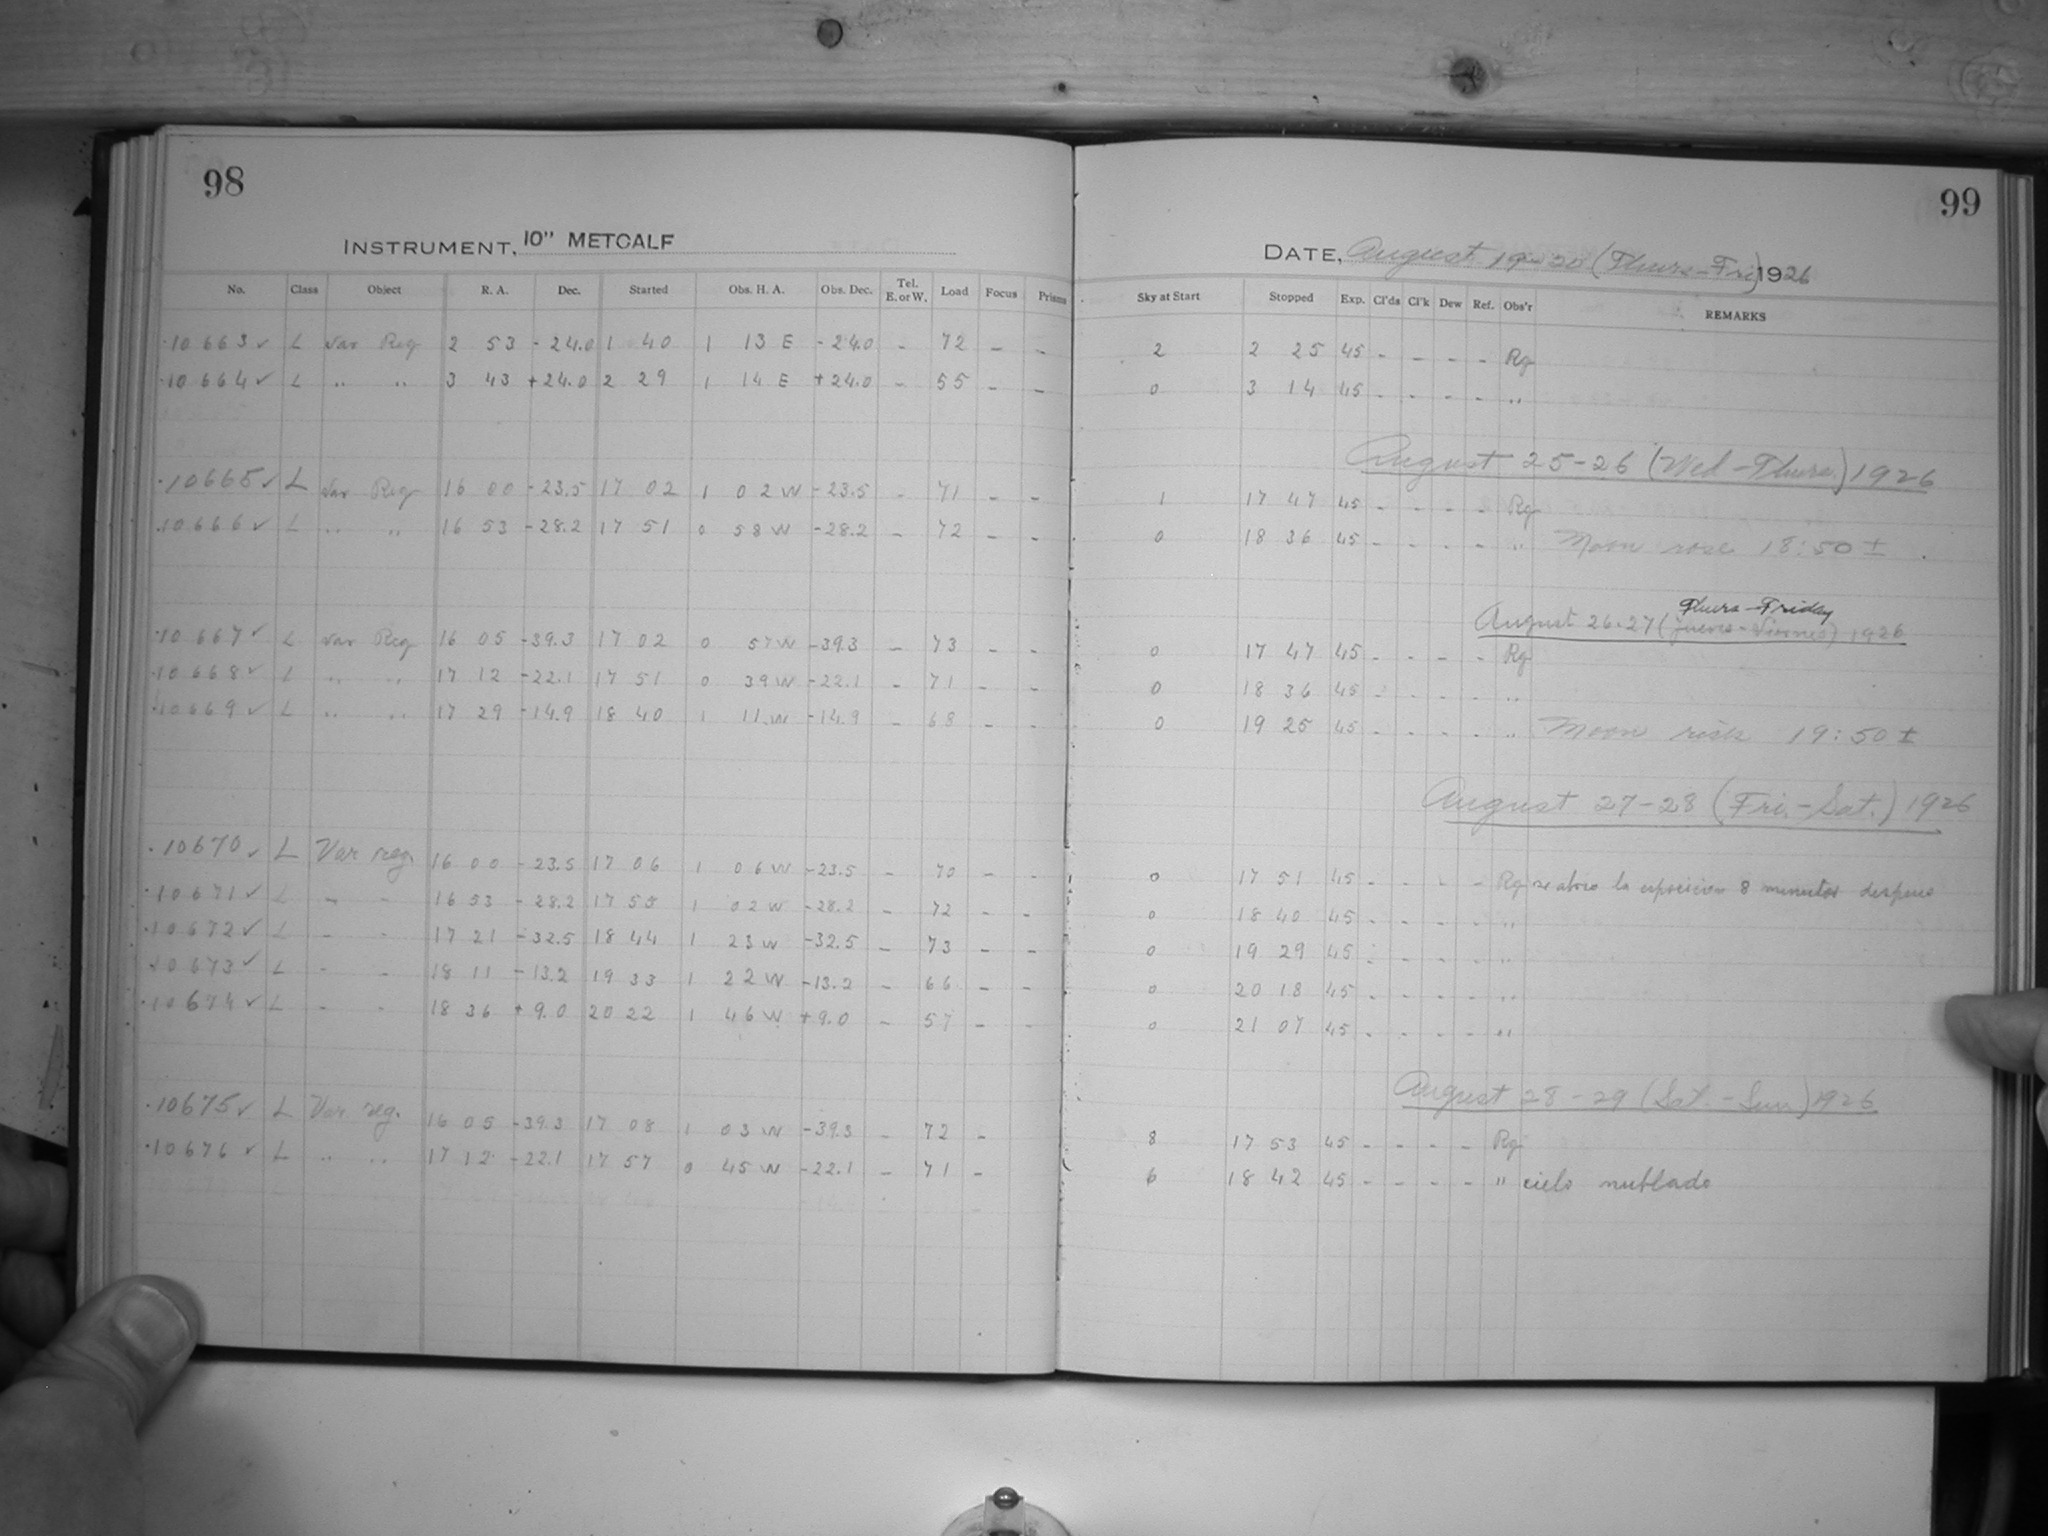 98
INSTRUMENT, 10" METCALF
No. Class Object R. A. Dec. Started Obs. H. A. Obs. Dec. Tel. E. or W. Load Focus Prisms
10663 ✓ L Var Reg 2 53 - 24.0 1 40 1 13 E - 24.0 - 72 - -
10664 ✓ L " " 3 43 + 24.0 2 29 1 14 E + 24.0 - 55 - -
10665 ✓ L Var Reg 16 00 - 23.5 17 02 1 02 W - 23.5 - 71 - -
10666 ✓ L " " 16 53 - 28.2 17 51 0 58 W - 28.2 - 72 - -
10667 ✓ L Var Reg 16 05 - 39.3 17 02 0 57 W - 39.3 - 73 - -
10668 ✓ L " " 17 12 - 22.1 17 51 0 39 W - 22.1 - 71 - -
10669 ✓ L " " 17 29 - 14.9 18 40 1 11 W - 14.9 - 68 - -
10670 ✓ L Var reg. 16 00 - 23.5 17 06 1 06 W - 23.5 - 70 - -
10671 ✓ L - - 16 53 - 28.2 17 55 1 02 W - 28.2 - 72 - -
10672 ✓ L - - 17 21 - 32.5 18 44 1 23 W - 32.5 - 73 - -
10673 ✓ L - - 18 11 - 13.2 19 33 1 22 W - 13.2 - 66 - -
10674 ✓ L - - 18 36 + 9.0 20 22 1 46 W + 9.0 - 57 - -
10675 ✓ L Var reg. 16 05 - 39.3 17 08 1 03 W - 39.3 - 72 -
10676 ✓ L " " 17 12 - 22.1 17 57 0 45 W - 22.1 - 71 -
99
DATE, August 19-20 (Thurs-Fri) 1926
Sky at Start Stopped Exp. Cl'ds Cl'k Dew Ref. Obs'r REMARKS
2 2 25 45 - - - - Rg
0 3 14 45 - - - - "
August 25-26 (Wed-Thurs.) 1926
1 17 47 45 - - - - Rg
0 18 36 45 - - - - " Moon rose 18:50 ±
Thurs-Friday
August 26-27 (jueves-Viernes) 1926
0 17 47 45 - - - - Rg
0 18 36 45 - - - - "
0 19 25 45 - - - - " Moon rises 19:50 ±
August 27-28 (Fri.-Sat.) 1926
0 17 51 45 - - - - Rg se abrio la exposicion 8 minutos despues
0 18 40 45 - - - - "
0 19 29 45 - - - - "
0 20 18 45 - - - - "
0 21 07 45 - - - - "
August 28-29 (Sat.-Sun) 1926
8 17 53 45 - - - - Rg
6 18 42 45 - - - - " cielo nublado